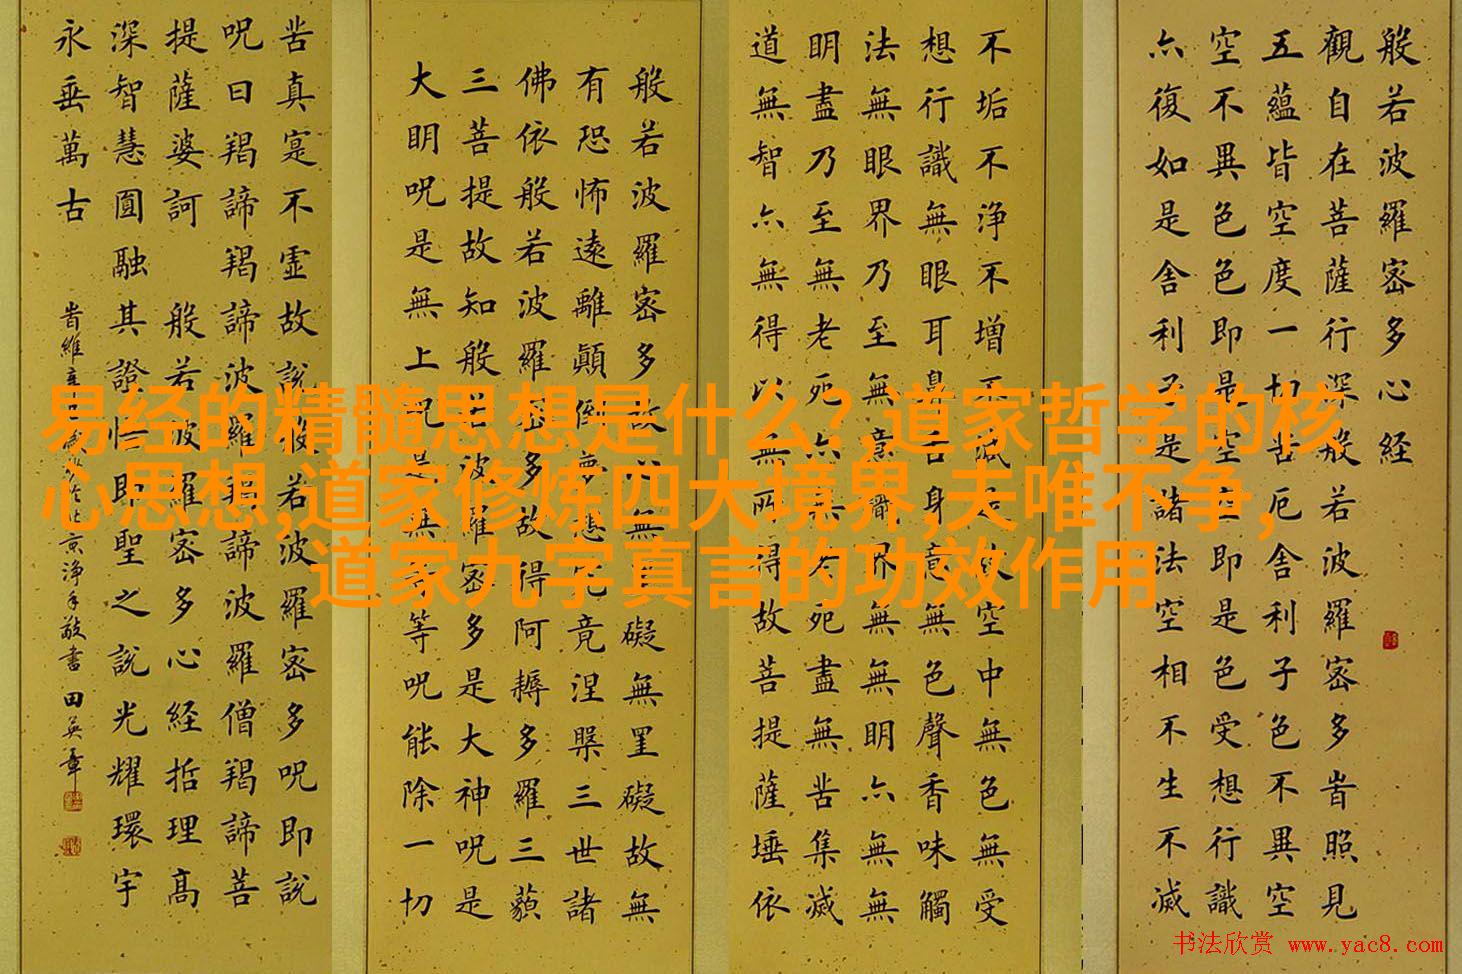 般若波羅密多心经
觀自在菩薩行深般若波羅密多峕照見
五蘊皆空度一切苦厄舍利子色不異空
空不異色色即是空空即是色受想行識
亦復如是舍利子是諸法空相不生不滅
不垢不浄不增不減是故空中無色無受
想行識無眼耳鼻舌身意無色聲香味觸
法無眼界乃至無意識界無無明亦無無
明盡乃至無老死亦無老死盡無苦集滅
道無智亦無得以無所得故菩提薩埵依
般若波羅密多故心無罣礙無罣礙故無
有恐怖遠離顛倒夢想究竟涅槃三世諸
佛依般若波羅密多故得阿耨多羅三藐
三菩提故知般若波羅密多是大神呪是
大明呪是無上呪是無等等呪能除一切
苦真寔不虚故說般若波羅密多呪即說
呪曰羯諦羯諦波羅羯諦波羅僧羯諦菩
提薩婆訶 般若波羅密多心经括理高
深智慧圓融其證悟即聖之說光耀環宇
永垂萬古
京浄手敬書 田英章
易经的精髓思想是什么?,道家哲学的核
心思想,道家修炼四大境界,夫唯不争,
道家九字真言的功效作用
书法欣赏 www.yac8.com